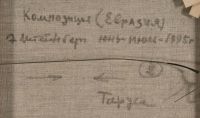 Композиция (Евразия)
Э. Штейнберг июнь-июль-1995г
Таруса